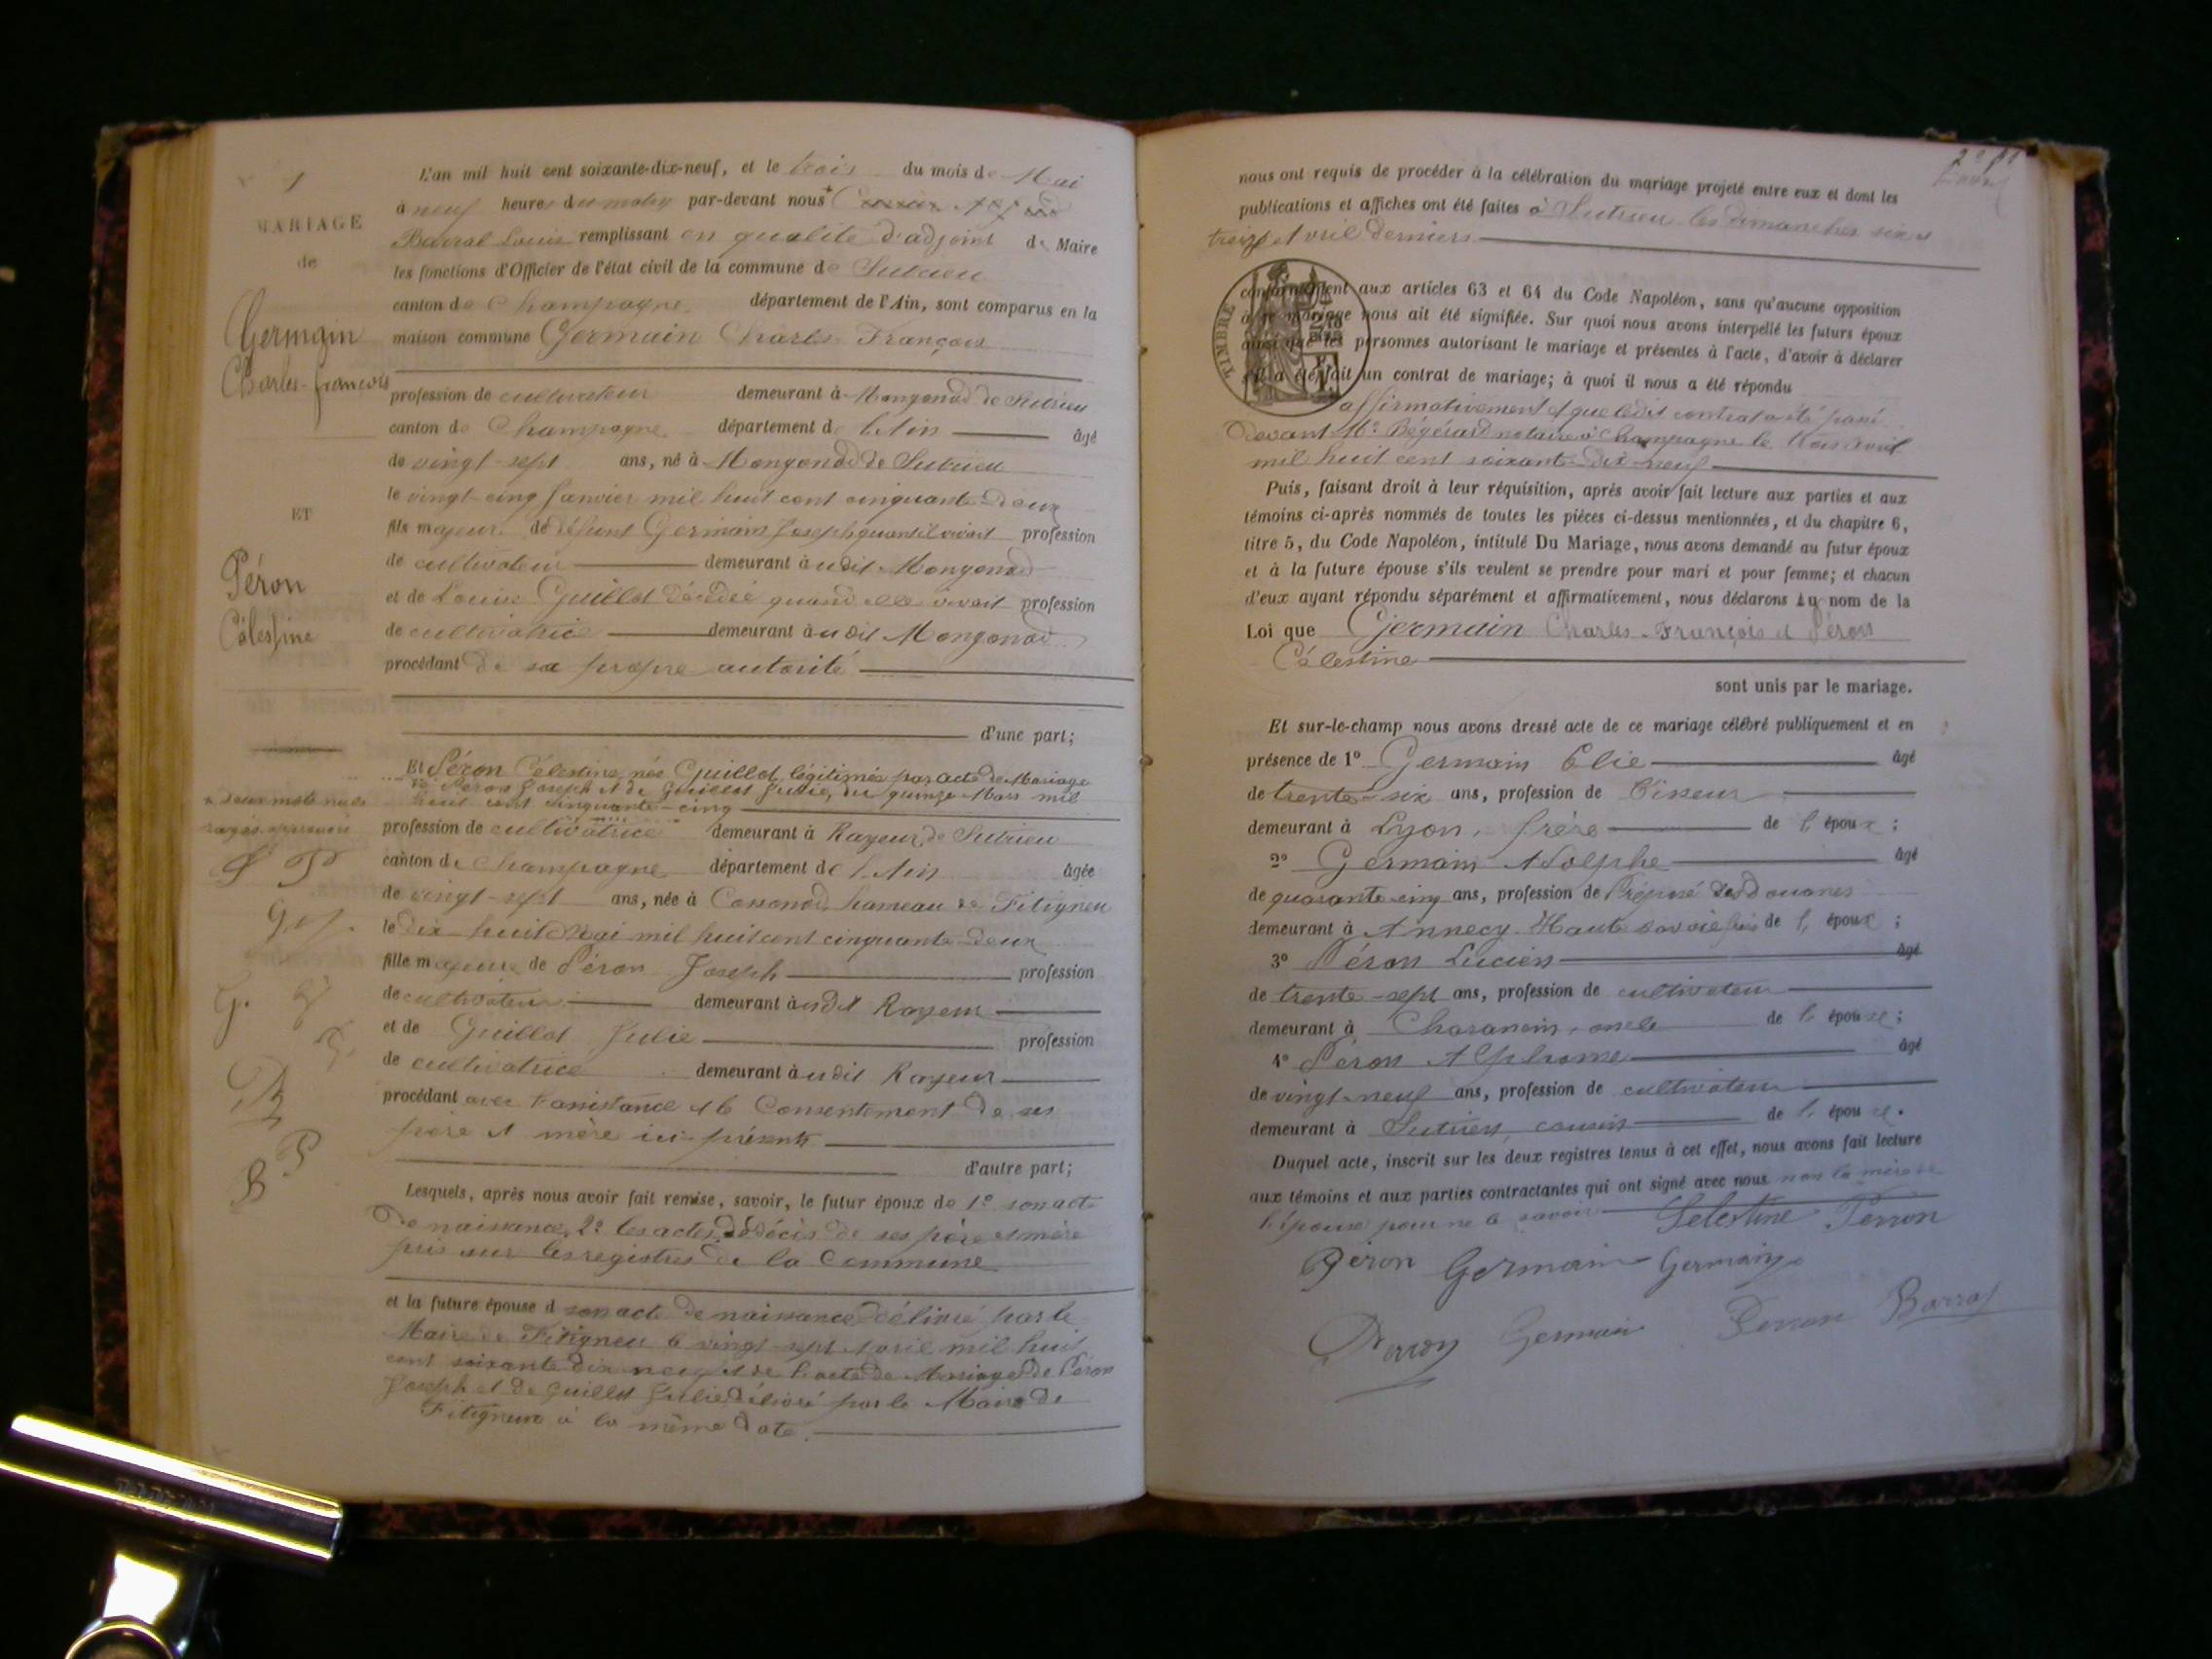 1
MARIAGE
de
Germain
Charles-François
ET
Péron
Célestine
x deux mots nuls
rayés approuvés
L'an mil huit cent soixante-dix-neuf, et le trois du mois de Mai
à neuf heures du matin par-devant nous
Barral Louis remplissant en qualité d'adjoint de Maire
les fonctions d'Officier de l'état civil de la commune de Sutrieu
canton de Champagne, département de l'Ain, sont comparus en la
maison commune Germain Charles François
profession de cultivateur demeurant à Mongonod de Sutrieu
canton de Champagne département de l'Ain âgé
de vingt-sept ans, né à Mongonod de Sutrieu
le vingt-cinq Janvier mil huit cent cinquante-deux
fils majeur de défunt Germain Joseph quand il vivait profession
de cultivateur demeurant audit Mongonod
et de Louise Guillot décédée quand elle vivait profession
de cultivatrice demeurant audit Mongonod
procédant de sa propre autorité
d'une part;
Et Péron Célestine, née Guillot, légitimée par acte de Mariage
de Péron Joseph et de Guillot Julie, du quinze Mars mil
huit cent cinquante-cinq
profession de cultivatrice demeurant à Rayeur de Sutrieu
canton de Champagne département de l'Ain âgée
de vingt-sept ans, née à Cossonod hameau de Fitigneu
le dix-huit Mai mil huit cent cinquante-deux
fille majeure de Péron Joseph profession
de cultivateur demeurant audit Rayeur
et de Guillot Julie profession
de cultivatrice demeurant audit Rayeur
procédant avec l'assistance et le Consentement de ses
père et mère ici présents
d'autre part;
Lesquels, après nous avoir fait remise, savoir, le futur époux de 1° son acte
de naissance, 2° les actes de décès de ses père et mère
pris sur les registres de la Commune
et la future épouse d son acte de naissance délivré par le
Maire de Fitigneu le vingt-sept Avril mil huit
cent soixante dix neuf et de l'acte de Mariage de Péron
Joseph et de Guillot Julie, délivré par le Maire de
Fitigneu à la même date.
nous ont requis de procéder à la célébration du mariage projeté entre eux et dont les
publications et affiches ont été faites à Sutrieu les dimanches six et
treize Avril derniers
TIMBRE
conformément aux articles 63 et 64 du Code Napoléon, sans qu'aucune opposition
à ce mariage nous ait été signifiée. Sur quoi nous avons interpellé les futurs époux
ainsi que les personnes autorisant le mariage et présentes à l'acte, d'avoir à déclarer
s'il a été fait un contrat de mariage; à quoi il nous a été répondu
affirmativement et que ledit contrat a été passé
devant Me notaire à Champagne le trois Avril
mil huit cent soixante-dix-neuf
Puis, faisant droit à leur réquisition, après avoir fait lecture aux parties et aux
témoins ci-après nommés de toutes les pièces ci-dessus mentionnées, et du chapitre 6,
titre 5, du Code Napoléon, intitulé Du Mariage, nous avons demandé au futur époux
et à la future épouse s'ils veulent se prendre pour mari et pour femme; et chacun
d'eux ayant répondu séparément et affirmativement, nous déclarons au nom de la
Loi que Germain Charles-François et Péron
Célestine
sont unis par le mariage.
Et sur-le-champ nous avons dressé acte de ce mariage célébré publiquement et en
présence de 1° Germain Elie âgé
de trente-six ans, profession de Tisseur
demeurant à Lyon, frère de l'époux;
2° Germain Adolphe âgé
de quarante-cinq ans, profession de Préposé des Douanes
demeurant à Annecy Haute Savoie frère de l'époux;
3° Péron Lucien âgé
de trente-sept ans, profession de cultivateur
demeurant à oncle de l'épouse;
4° Péron Alphonse âgé
de vingt-neuf ans, profession de cultivateur
demeurant à Sutrieu, cousin de l'épouse.
Duquel acte, inscrit sur les deux registres tenus à cet effet, nous avons fait lecture
aux témoins et aux parties contractantes qui ont signé avec nous non la mère de
l'épouse pour ne le savoir Selestine Perron
Péron Germain Germain
Perron Germain Perron Barral